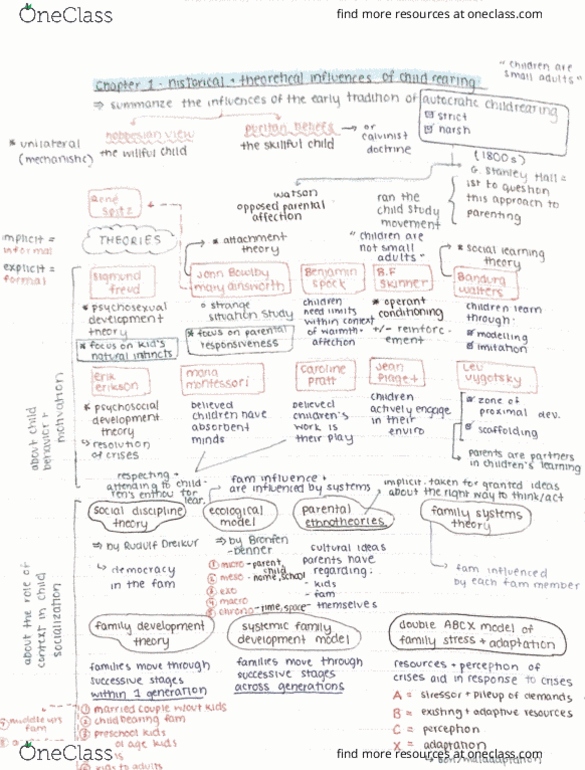 OneClass
find more resources at oneclass.com
"children are
small adults"
Chapter 1 - historical + theoretical influences of child rearing
⇒ summarize the influences of the early tradition of autocratic childrearing
☑ strict
☑ harsh
* unilateral
(mechanistic)
hobbesian view
the willful child
puritan beliefs → or
calvinist
doctrine
the skillful child
(1800s)
G. Stanley Hall =
1st to question
this approach to
parenting
René
Spitz
watson
opposed parental
affection
ran the
child study
movement
"children are
not small
adults"
implicit =
informal
explicit =
formal
THEORIES
* attachment
theory
* social learning
theory
Sigmund
freud
* psychosexual
development
theory
* focus on kid's
natural intincts
John Bowlby
mary ainsworth
° strange
situation study
* focus on parental
responsiveness
Benjamin
spock
children
need limits
within context
of warmth +
affection
B.F
skinner
* operant
conditioning
+/- reinforce-
ement
Bandura
walters
children learn
through:
* modelling
* imitation
about child
behavior +
motivation
erik
erikson
* psychosocial
development
theory
↳ resolution
of crises
maria
montessori
believed
children have
absorbent
minds
caroline
pratt
believed
children's
work is
their play
Jean
Piaget
children
actively engage
in their
enviro
Lev
vygotsky
* zone of
proximal dev.
* scaffolding
↳ parents are partners
in children's learning
respecting +
attending to child-
ren's enthou for
lear.
fam influence +
are influenced by systems
implicit, taken for granted ideas
about the right way to think/act
about the role of
context in child
socialization
social discipline
theory
⇒ by Rudulf Dreikur
↳ democracy
in the fam
ecological
model
⇒ by Bronfen
-benner
① micro - parent
child
② meso - home, school
③ exo
④ macro
⑤ chrono - time, space
parental
ethnotheories
cultural ideas
parents have
regarding:
- kids
- fam
- themselves
family systems
theory
↳ fam influenced
by each fam member
family development
theory
families move through
successive stages
within 1 generation
① married couple w/out kids
② child bearing fam
③ preschool kids
of age kids
kids to adults
⑦ middle yrs
fam
systemic family
development model
families move through
successive stages
across generations
double ABCX model of
family stress + adaptation
resources + perception of
crises aid in response to crises
A = stressor + pileup of demands
B = existing + adaptive resources
C = perception
X = adaptation
OneClass
find more resources at oneclass.com